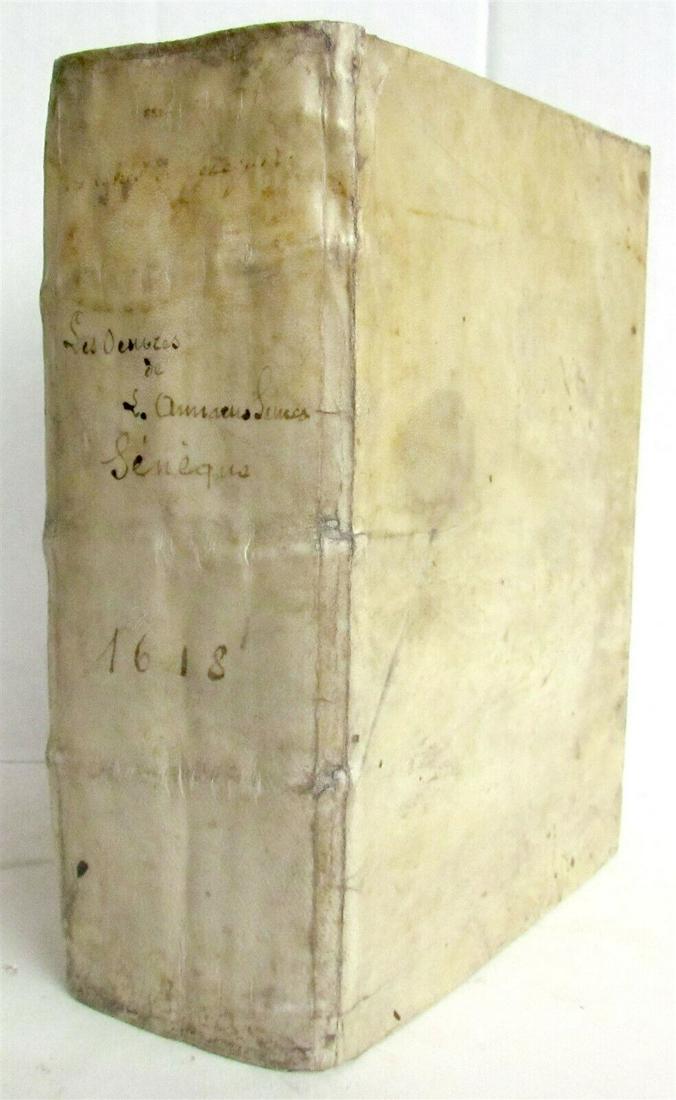 Les Oeuvres
de
L. Annaeus Seneca
Sénèque
1618